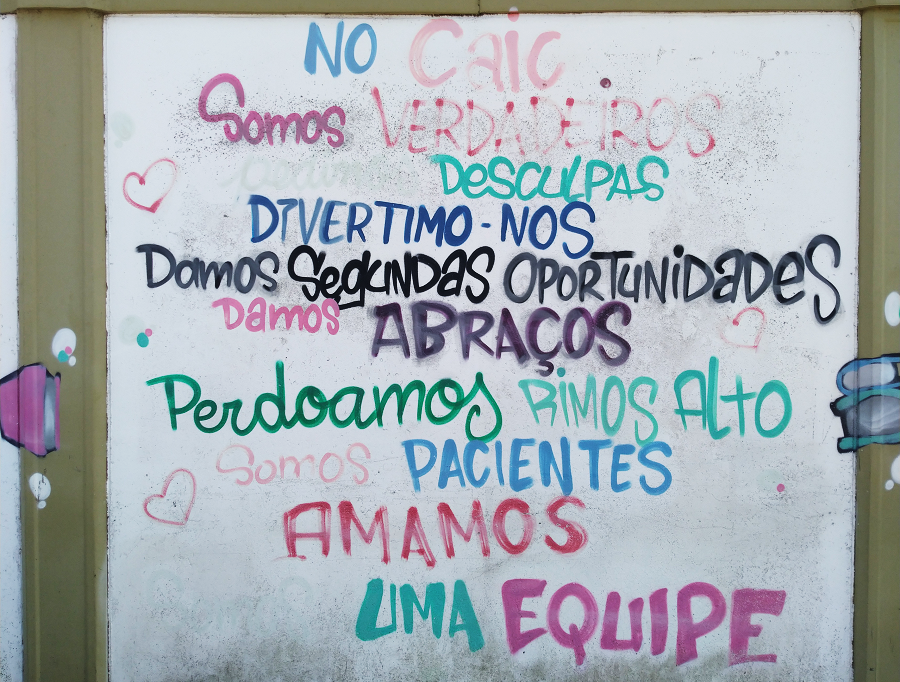 NO Caic
Somos VERDADEIROS
Pedimos DESCULPAS
DIVERTIMO-NOS
Damos SegUNDAS OPORTUNiDADES
Damos ABRAÇOS
Perdoamos RiMOS Alto
Somos PACIENTES
AMAMOS
Somos UMA EQUIPE